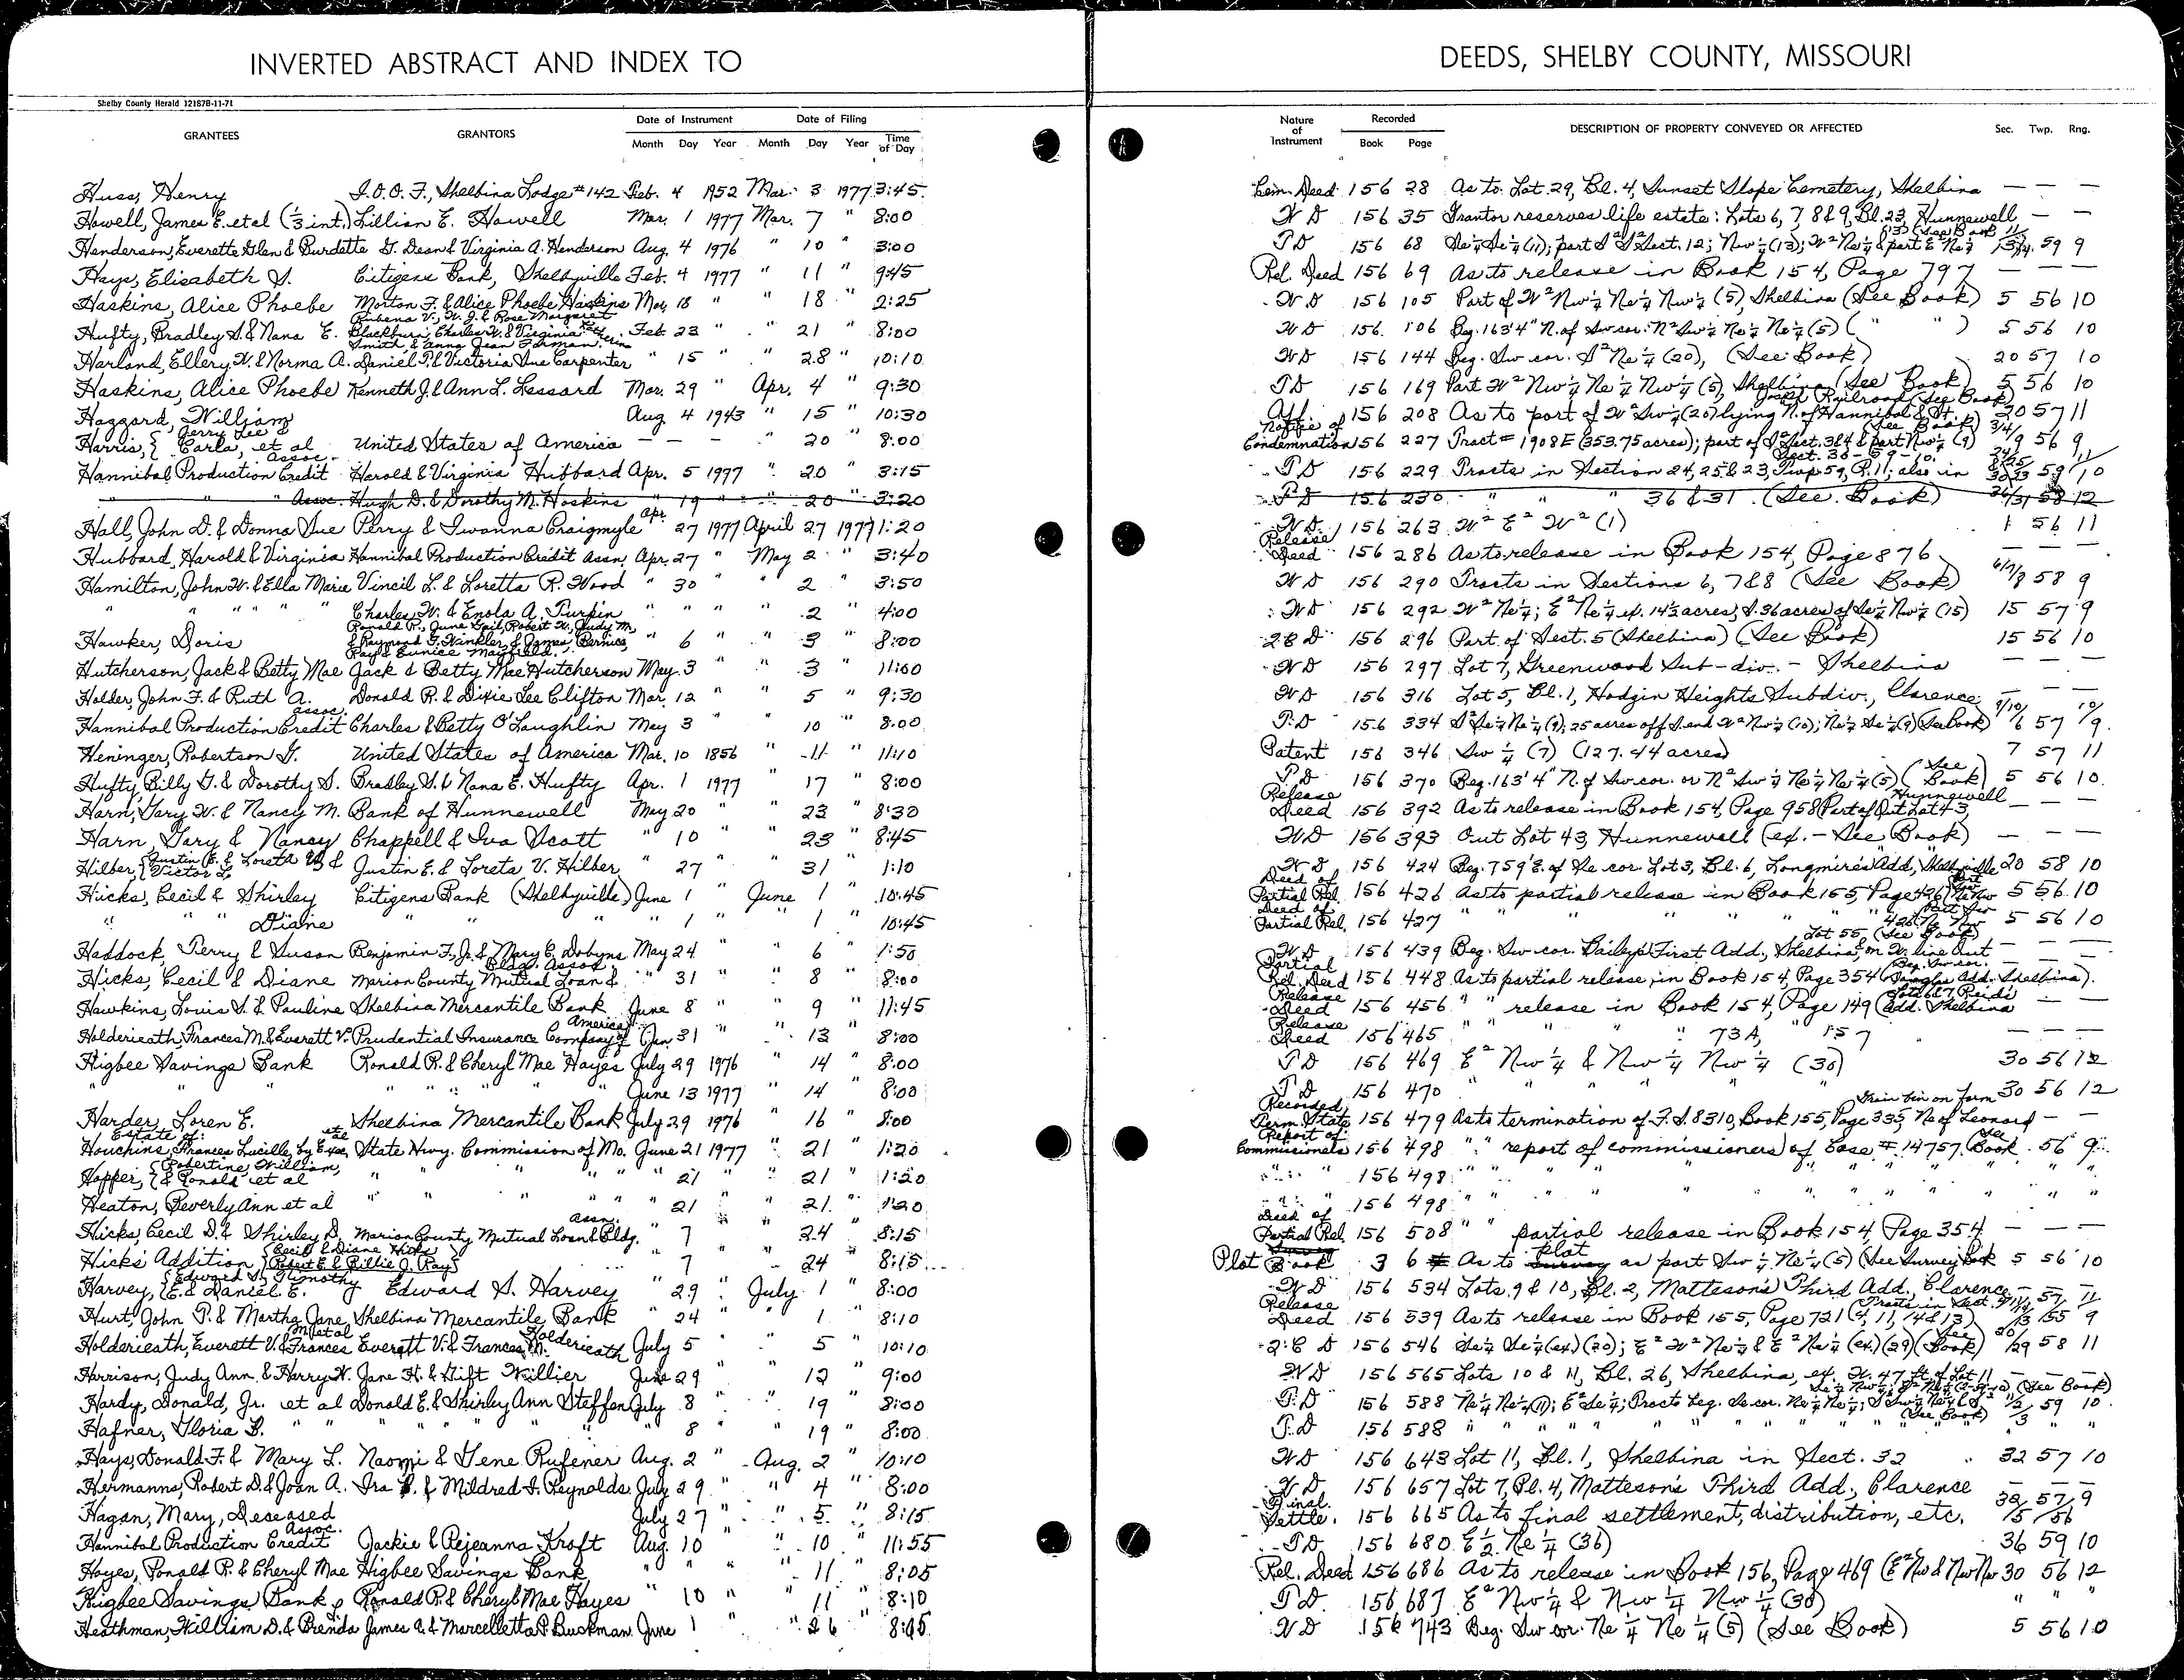 INVERTED ABSTRACT AND INDEX TO DEEDS, SHELBY COUNTY, MISSOURI
Shelby County Herald 121878-11-71
GRANTEES GRANTORS Date of Instrument Month Day Year Date of Filing Month Day Year Time of Day Nature of Instrument Recorded Book Page DESCRIPTION OF PROPERTY CONVEYED OR AFFECTED Sec. Twp. Rng.
Huss, Henry I.O.O.F., Shelbina Lodge #142 Feb. 4 1952 Mar. 3 1977 3:45 Cem. Deed 156 28 As to Lot 29, Bl. 4, Sunset Slope Cemetery, Shelbina — — —
Howell, James E. et al (1/3 int.) Lillian E. Howell Mar. 1 1977 Mar. 7 " 8:00 WD 156 35 Grantor reserves life estate: Lots 6, 7 8 & 9, Bl. 23, Hunnewell — —
Henderson, Everette Glen & Burdette G. Dean & Virginia A. Henderson Aug. 4 1976 " 10 " 3:00 TD 156 68 Se¼ Se¼ (11); part S² S² Sect. 12; Nw¼ (13); W² Ne¼ & part E² Ne¼ 59 9
Hays, Elizabeth S. Citizens Bank, Shelbyville Feb. 4 1977 " 11 " 9:45 Rel. Deed 156 69 As to release in Book 154, Page 797 — — —
Haskins, Alice Phoebe Morton F. & Alice Phoebe Haskins Mar. 18 " " 18 " 2:25 WD 156 105 Part of W² Nw¼ Ne¼ Nw¼ (5), Shelbina (See Book) 5 56 10
Hufty, Bradley S. & Nana E. Rubena V., W. J. & Rose Margaret Blackburn, Charles W. & Virginia Smith & Anna Jean Forman Feb. 23 " " 21 " 8:00 WD 156 106 Beg. 163'4" N. of Sw cor. N² Sw¼ Ne¼ Ne¼ (5) ( " " ) 5 56 10
Harland, Ellery W. & Norma A. Daniel P. & Victoria Sue Carpenter " 15 " " 28 " 10:10 WD 156 144 Beg. Sw cor. S² Ne¼ (20), (See Book) 20 57 10
Haskins, Alice Phoebe Kenneth J. & Ann L. Lessard Mar. 29 " Apr. 4 " 9:30 TD 156 169 Part W² Nw¼ Ne¼ Nw¼ (5), Shelbina (See Book) 5 56 10
Haggard, William Aug. 4 1943 " 15 " 10:30 Aff. 156 208 As to part of W² Sw¼ (20) lying N. of Hannibal & St. Joseph Railroad (See Book) 20 57 11
Harris, { Jerry Lee & Carla, et al United States of America — — — " 20 " 8:00 Notice of Condemnation 156 227 Tract # 1908E (353.75 acres); part of S² Sect. 3 & 4 & part Nw¼ (9) (See Book) 3/4/9 56 9
Hannibal Production Credit Assoc. Harold & Virginia Hubbard Apr. 5 1977 " 20 " 3:15 TD 156 229 Tracts in Section 24, 25 & 23, Twp. 59, R. 11; also in Sect. 30-59-10.
" " " Assoc. Hugh D. & Dorothy M. Hoskins " 19 " " 20 " 3:20 TD 156 230 " " " 36 & 31. (See Book) 36/31 58 12
Hall, John D. & Donna Sue Perry & Iwanna Craigmyle Apr. 27 1977 April 27 1977 1:20 WD 156 263 W² E² W² (1) 1 56 11
Hubbard, Harold & Virginia Hannibal Production Credit Assn. Apr. 27 " May 2 " 3:40 Release Deed 156 286 As to release in Book 154, Page 876 — — —
Hamilton, John W. & Ella Marie Vincil L. & Loretta R. Wood " 30 " " 2 " 3:50 WD 156 290 Tracts in Sections 6, 7 & 8 (See Book) 6/7/8 58 9
" " " " " Charles W. & Enola A. Turpin " " " " 2 " 4:00 WD 156 292 W² Ne¼; E² Ne¼ ex. 14½ acres; S. 36 acres of Se¼ Nw¼ (15) 15 57 9
Hawker, Doris Ronald R., June Gail, Robert W., Judy M., & Raymond G. Winkler, & James, Bernice, Ray & Eunice Mayfield. " 6 " " 3 " 8:00 2CD 156 296 Part of Sect. 5 (Shelbina) (See Book) 15 56 10
Hutcherson, Jack & Betty Mae Jack & Betty Mae Hutcherson May 3 " " 3 " 11:00 WD 156 297 Lot 7, Greenwood Sub-div. - Shelbina — — —
Holder, John F. & Ruth A. Donald R. & Dixie Lee Clifton Mar. 12 " " 5 " 9:30 WD 156 316 Lot 5, Bl. 1, Hodgin Heights Subdiv., Clarence — — —
Hannibal Production Credit Assoc. Charles & Betty O'Laughlin May 3 " " 10 " 8:00 TD 156 334 S² Se¼ Ne¼ (9); 25 acres off S. end W² Nw¼ (10); Ne¼ Se¼ (9) (See Book) 9/10/6 57 10/9
Heninger, Robertson G. United States of America Mar. 10 1856 " 11 " 11:10 Patent 156 346 Sw ¼ (7) (127.44 acres) 7 57 11
Hufty, Billy G. & Dorothy S. Bradley S. & Nana E. Hufty Apr. 1 1977 " 17 " 8:00 TD 156 370 Beg. 163'4" N. of Sw cor. or N² Sw¼ Ne¼ Ne¼ (5) (See Book) 5 56 10
Harn, Gary W. & Nancy M. Bank of Hunnewell May 20 " " 23 " 8:30 Release Deed 156 392 As to release in Book 154, Page 958 (Part of Out Lot 43, Hunnewell — — —
Harn, Gary & Nancy Chappell & Iva Scott " 10 " " 23 " 8:45 WD 156 393 Out Lot 43, Hunnewell (ex. - See Book) — — —
Hilber, { Justin E. & Loreta V. & Victor L. Justin E. & Loreta V. Hilber " 27 " " 31 " 1:10 WD 156 424 Beg. 759' E. of Se cor. Lot 3, Bl. 6, Longmire's Add., Shelbyville 20 58 10
Hicks, Cecil & Shirley Citizens Bank (Shelbyville) June 1 " June 1 " 10:45 Deed of Partial Rel. 156 426 As to partial release in Book 155, Page 426 5 56 10
" " " Diane " " " 1 " " 1 " 10:45 Deed of Partial Rel. 156 427 " " " " " " 5 56 10
Haddock, Terry & Susan Benjamin F., Jr. & Mary E. Dobyns May 24 " 6 " 1:50 WD 156 439 Beg. Sw cor. Bailey's First Add., Shelbina, on W. line Out Lot 55 (See Book) — — —
Hicks, Cecil & Diane Marion County Mutual Loan & Bldg. Assoc. " 31 " " 8 " 8:00 Partial Rel. Deed 156 448 As to partial release in Book 154, Page 354
Hawkins, Louis S. & Pauline Shelbina Mercantile Bank June 8 " " 9 " 11:45 Release Deed 156 456 " " release in Book 154, Page 149 (Lots 6 & 7 Reid's Add. Shelbina — —
Holderieath, Frances M. & Everett V. Prudential Insurance Company of America Jan. 31 " " 13 " 8:00 Release Deed 156 465 " " " " 73A, " 157 — — —
Higbee Savings Bank Ronald R. & Cheryl Mae Hayes July 29 1976 " 14 " 8:00 TD 156 469 E² Nw¼ & Nw¼ Nw¼ (30) 30 56 12
" " " " " " June 13 1977 " 14 " 8:00 TD 156 470 " " " " 30 56 12
Harder, Loren E. Shelbina Mercantile Bank July 29 1976 " 16 " 8:00 Recorded Term. State 156 479 As to termination of F.S. 8310, Book 155, Page 335, Ne of Leonard Grain bin on farm — —
Houchins, Estate of: Frances Lucille, by Exe., et al State Hwy. Commission of Mo. June 21 1977 " 21 " 1:20 Report of Commissioners 156 498 " " report of commissioners of Case # 14757 (See Book 56 9
Hopper, { Robertine, William, & Ronald et al " " " " " 21 " " 21 " 1:20 " " " 156 498 " " " " " " " "
Heaton, Beverly Ann et al " " " " " 21 " " 21 " 1:20 " " " 156 498 " " " " " " " "
Hicks, Cecil D. & Shirley D. Marion County Mutual Loan & Bldg. Assn. " 7 " " 24 " 8:15 Deed of Partial Rel. 156 508 " " partial release in Book 154, Page 354 — — —
Hicks' Addition { Cecil & Diane Hicks Robert E. & Billie J. Ray } 7 " " 24 " 8:15 Plat Book 3 6 As to plat as part Sw¼ Ne¼ (5) (See Survey Bk 5 56 10
Harvey, { Edward S., Timothy E. & Daniel E. Edward S. Harvey " 29 " July 1 " 8:00 WD 156 534 Lots 9 & 10, Bl. 2, Matteson's Third Add., Clarence 57 11
Hurt, John P. & Martha Jane Shelbina Mercantile Bank " 24 " " 1 " 8:10 Release Deed 156 539 As to release in Book 155, Page 721 55 9
Holderieath, Everett V. & Frances M. et al Everett V. & Frances M. Holderieath July 5 " " 5 " 10:10 2CD 156 546 Se¼ Se¼ (ex.) (20); E² W² Ne¼ & E² Ne¼ (ex.) (29) (See Book) 20/29 58 11
Harrison, Judy Ann & Harry W. Jane H. & Gift Willier June 29 " " 12 " 9:00 WD 156 565 Lots 10 & 11, Bl. 26, Shelbina, ex. W. 47 ft. of Lot 11
Hardy, Donald, Jr. et al Donald E. & Shirley Ann Steffen July 8 " " 19 " 8:00 TD 156 588 Ne¼ Ne¼ (11); E² Se¼; Tracts beg. Se cor. Ne¼ Ne¼; (See Book) 59 10
Hafner, Gloria B. " " " " " 8 " " 19 " 8:00 TD 156 588 " " " " " " (See Book) " "
Hays, Donald F. & Mary L. Naomi & Gene Rufener Aug. 2 " Aug. 2 " 10:10 WD 156 643 Lot 11, Bl. 1, Shelbina in Sect. 32 32 57 10
Hermanns, Robert D. & Joan A. Ira B. & Mildred I. Reynolds July 29 " " 4 " 8:00 WD 156 657 Lot 7, Bl. 4, Matteson's Third Add., Clarence — — —
Hagan, Mary, Deceased July 27 " " 5 " 8:15 Final Settle. 156 665 As to final settlement, distribution, etc. 57/56 9
Hannibal Production Credit Assoc. Jackie & Rejeanna Kroft Aug. 10 " " 10 " 11:55 TD 156 680 E½ Ne¼ (36) 36 59 10
Hayes, Ronald R. & Cheryl Mae Higbee Savings Bank " " " " 11 " 8:05 Rel. Deed 156 686 As to release in Book 156, Page 469 (E² Nw & Nw Nw 30 56 12
Higbee Savings Bank Ronald R. & Cheryl Mae Hayes " 10 " " 11 " 8:10 TD 156 687 E² Nw¼ & Nw¼ Nw¼ (30) " " "
Heathman, William D. & Brenda James A. & Marcelletta P. Buckman June 1 " " 26 " 8:45 WD 156 743 Beg. Sw cor. Ne¼ Ne¼ (5) (See Book) 5 56 10